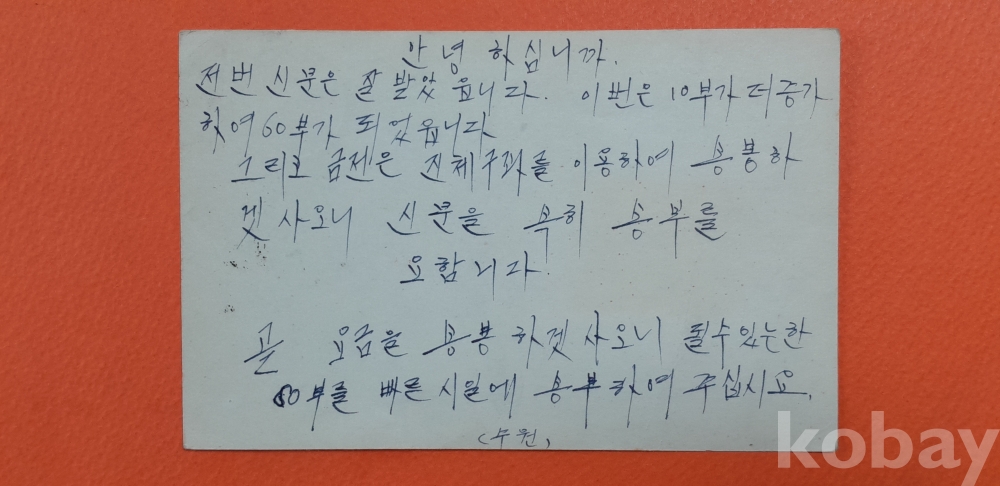 안녕 하십니까.
전번 신문은 잘 받았읍니다. 이번은 10부가 더증가
하여 60부가 되었읍니다
그리고 금전은 진체구좌를 이용하여 송봉하
겟사오니 신문을 속히 송부를
요합니다.
곧 요금을 송봉하겟사오니 될수있는한
60부를 빠른시일에 송부하여 주십시요.
(수원)
kobay